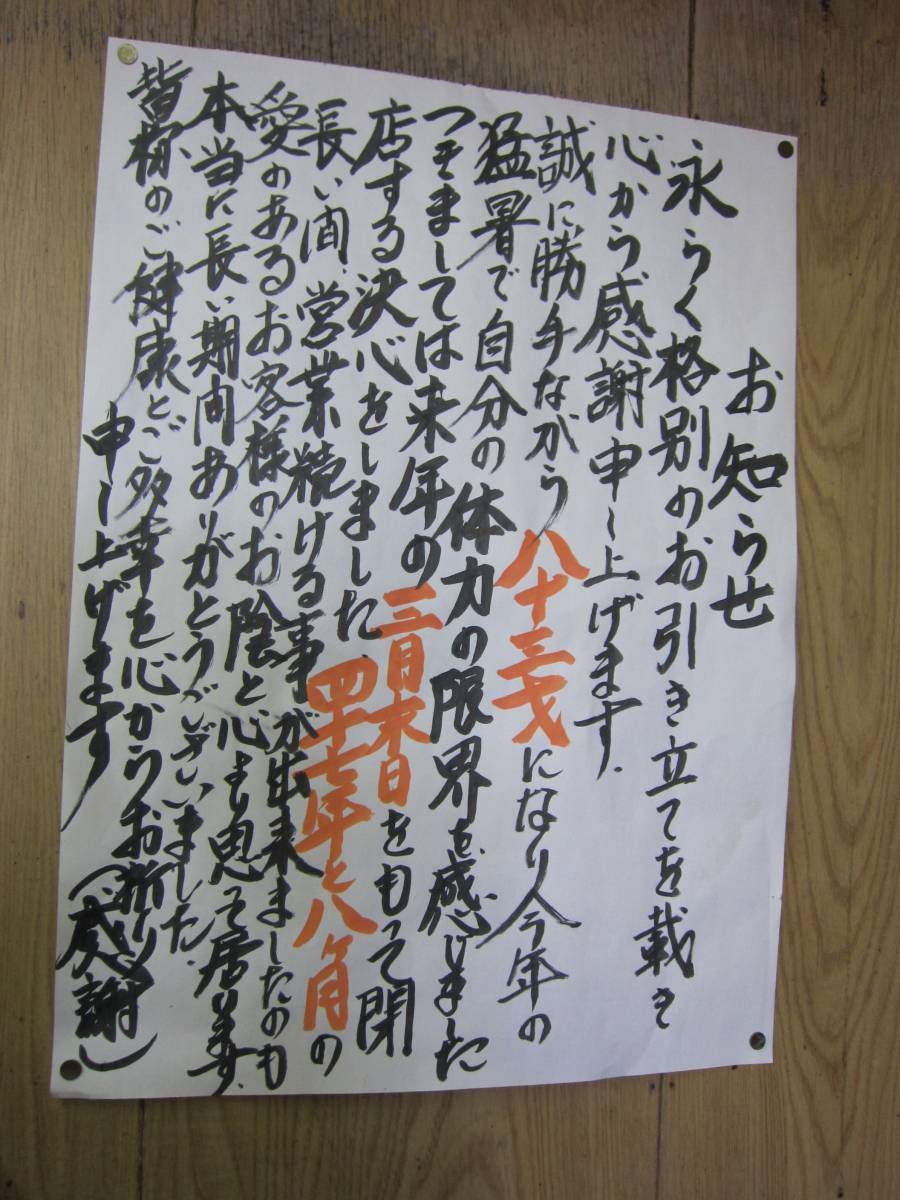 お知らせ
永らく格別のお引き立てを載き
心から感謝申し上げます.
誠に勝手ながら八十三才になり今年の
猛暑で自分の体力の限界を感じました
つきましては来年の三月末日をもって閉
店する決心をしました、四十七年と八ヶ月の
長い間、営業続ける事が出来ましたのも
愛のあるお客様のお陰と心より思って居ります.
本当に長い期間ありがとうございました.
皆様のご健康とご多幸を心からお祈り
申し上げます(感謝)